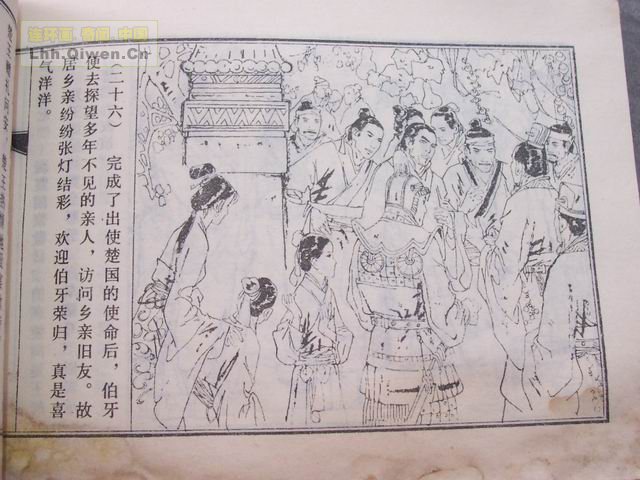 连环画.奇闻.中国
Lhh.Qiwen.Cn
（二十六） 完成了出使楚国的使命后，伯牙
便去探望多年不见的亲人，访问乡亲旧友。故
居乡亲纷纷张灯结彩，欢迎伯牙荣归，真是喜
气洋洋。